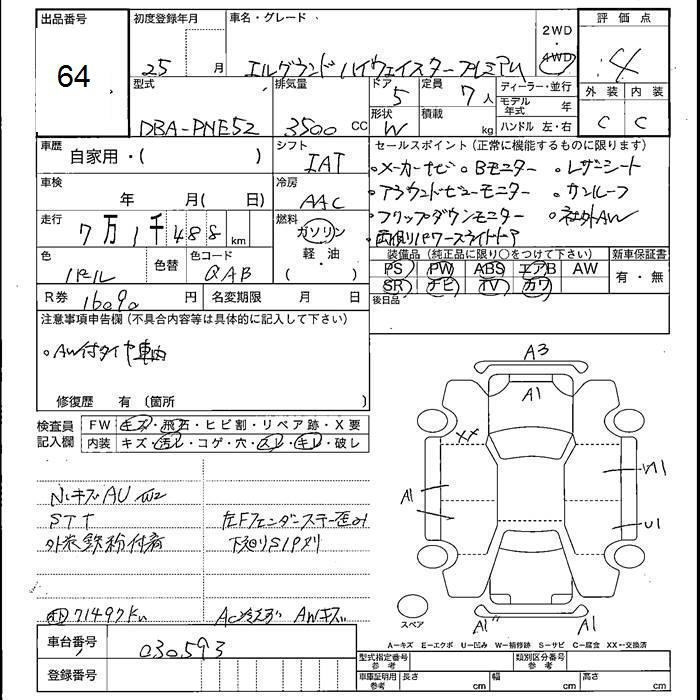 出品番号 初度登録年月 車名・グレード 2WD・4WD 評価点
64 25 月 エルグランド ハイウェイスタープレミアム 4
型式 排気量 ドア 5 定員 7人 ディーラー・並行 外装 内装
DBA-PNE52 3500 CC 形状 W 積載 kg モデル年式 年 C C
ハンドル 左・右
車歴 自家用・( ) シフト IAT セールスポイント(正常に機能するものに限ります)
・メーカーナビ ・Bモニター ・レザーシート
車検 年 月( 日) 冷房 AAC ・アラウンドビューモニター ・サンルーフ
走行 7万1千488km 燃料 ガソリン 軽・油 ( ) ・フリップダウンモニター ・社外AW
・両側パワースライドドア
色 パール 色替 色コード QAB 装備品(純正品に限り○をつけて下さい) 新車保証書
PS PW ABS エアB AW 有・無
SR ナビ TV カワ
R券 16090円 名変期限 月 日 後日品
注意事項申告欄(不具合内容等は具体的に記入して下さい)
・AW付タイヤ車内
修復歴 有 〔箇所 〕
検査員記入欄 FW キズ・飛石・ヒビ割・リペア跡・X要
内装 キズ・汚レ・コゲ・穴・スレ・キレ・破し
A3
A1
XX
A1
U1
A1
A1
スペア
ハンキズAU
STナ 左Fフェンダーステー歪み
外装鉄粉付着 下廻りSIPメリ
71497Km AC冷えず AWキズ
A=キズ E=エクボ U=凹み W=補修跡 S=サビ C=腐食 XX=交換済
車台番号 030593
登録番号
型式指定番号 参考 類別区分番号 参考
車庫証明用 参考 長さ cm 幅 cm 高さ cm